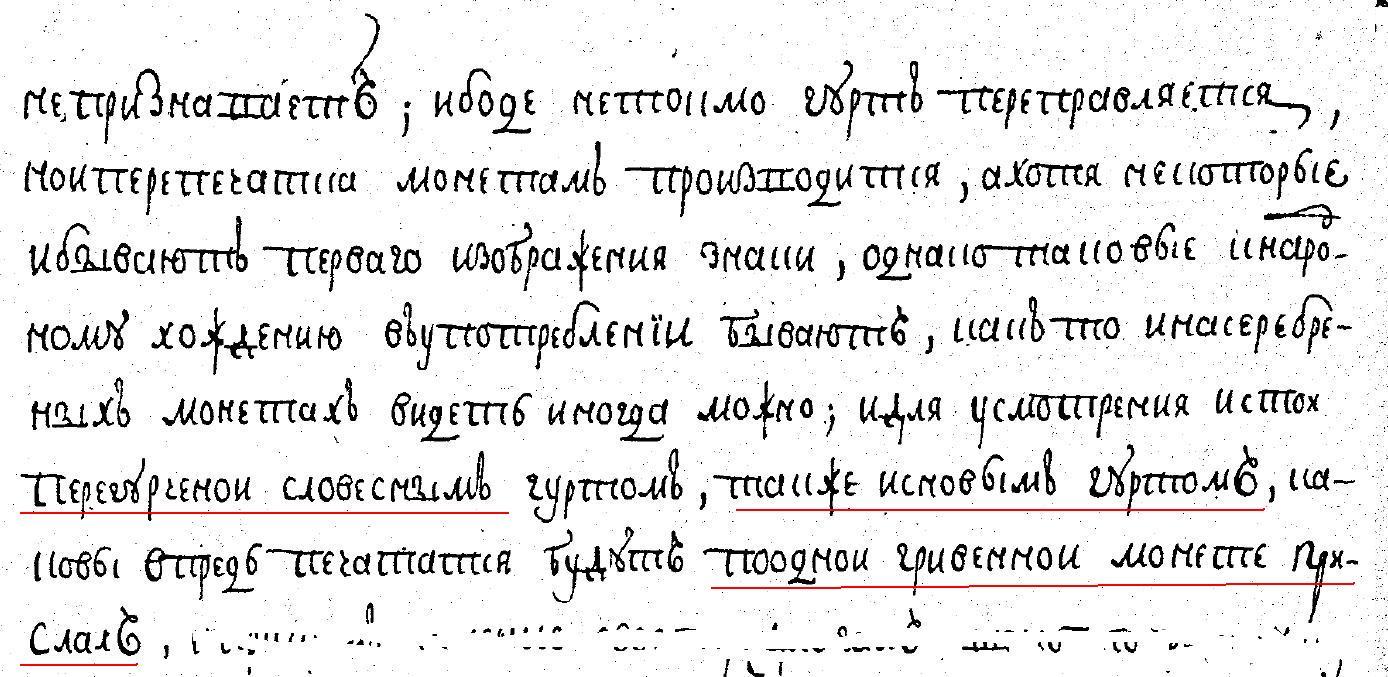 непризнаваетъ ; ибоде нетокмо гуртъ переправляется ,
ноиперепечатка монетамъ производится , ахотя некоторые
ибываютъ перваго изображения знаки , однакотаковые кнаро-
ному хождению въупотреблении бываютъ , какъ то инасеребре-
ныхъ монетахъ видеть иногда можно ; идля усмотрения истох
перегурченой словеснымъ гуртомъ , также исновымъ гуртомъ , ка-
ковы впредь печататся будутъ поодной гривенной монете при-
слалъ ,